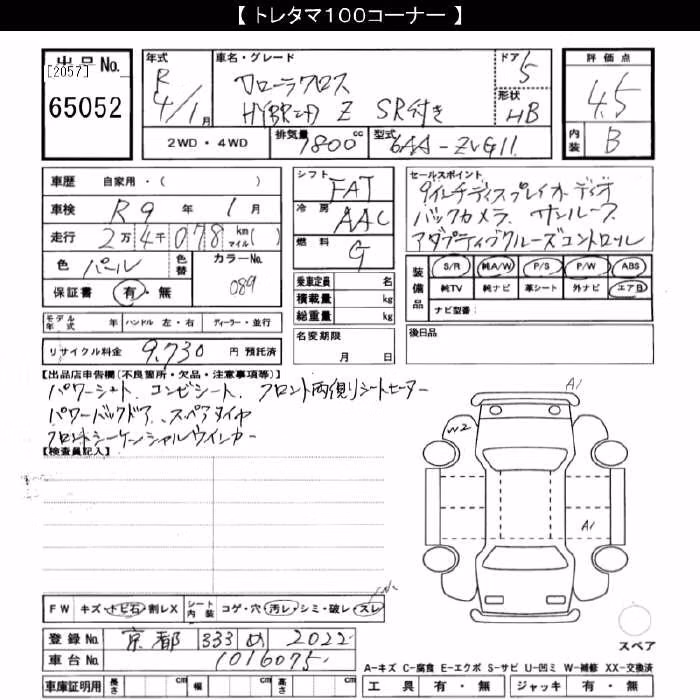 【 トレタマ100コーナー 】
出品No.
[2057]
65052
年式
R 4/1月
車名・グレード
カローラクロス
HYBRID Z SR付き
ドア 5
形状 HB
評価点
4.5
内装 B
2WD・4WD
排気量 1800cc
型式 6AA-ZVG11
車歴 自家用・( )
車検 R9年 1月
走行 2万4千078 km マイル( )
色 パール
色替
カラーNo. 089
保証書 有・無
モデル年式 年 ハンドル 左・右 ディーラー・並行
リサイクル料金 9,730 円 預託済
シフト FAT
冷房 AAC
燃料 G
乗車定員 名
積載量 kg
総重量 kg
名変期限
月 日
セールスポイント
9インチディスプレイオーディオ
バックカメラ、サンルーフ
アダプティブクルーズコントロール
装備品 S/R 純A/W P/S P/W ABS
純TV 純ナビ 革シート 外ナビ エアB
ナビ型番:
後日品
【出品店申告欄(不良箇所・欠品・注意事項等)】
パワーシート、コンビシート、フロント両側シートヒーター
パワーバックドア、スペアタイヤ
フロントシーケンシャルウインカー
【検査員記入】
A1
W2
A1
FW キズ・トビ石・割レX シート内装 コゲ・穴・汚レ・シミ・破レ・スレ
登録No. 京都 333 め 2022
車台No. 1016075
車庫証明用 長さ cm 幅 cm 高さ cm
スペア
A-キズ C-腐食 E-エクボ S-サビ U-凹ミ W-補修 XX-交換済
工具 有・無 ジャッキ 有・無